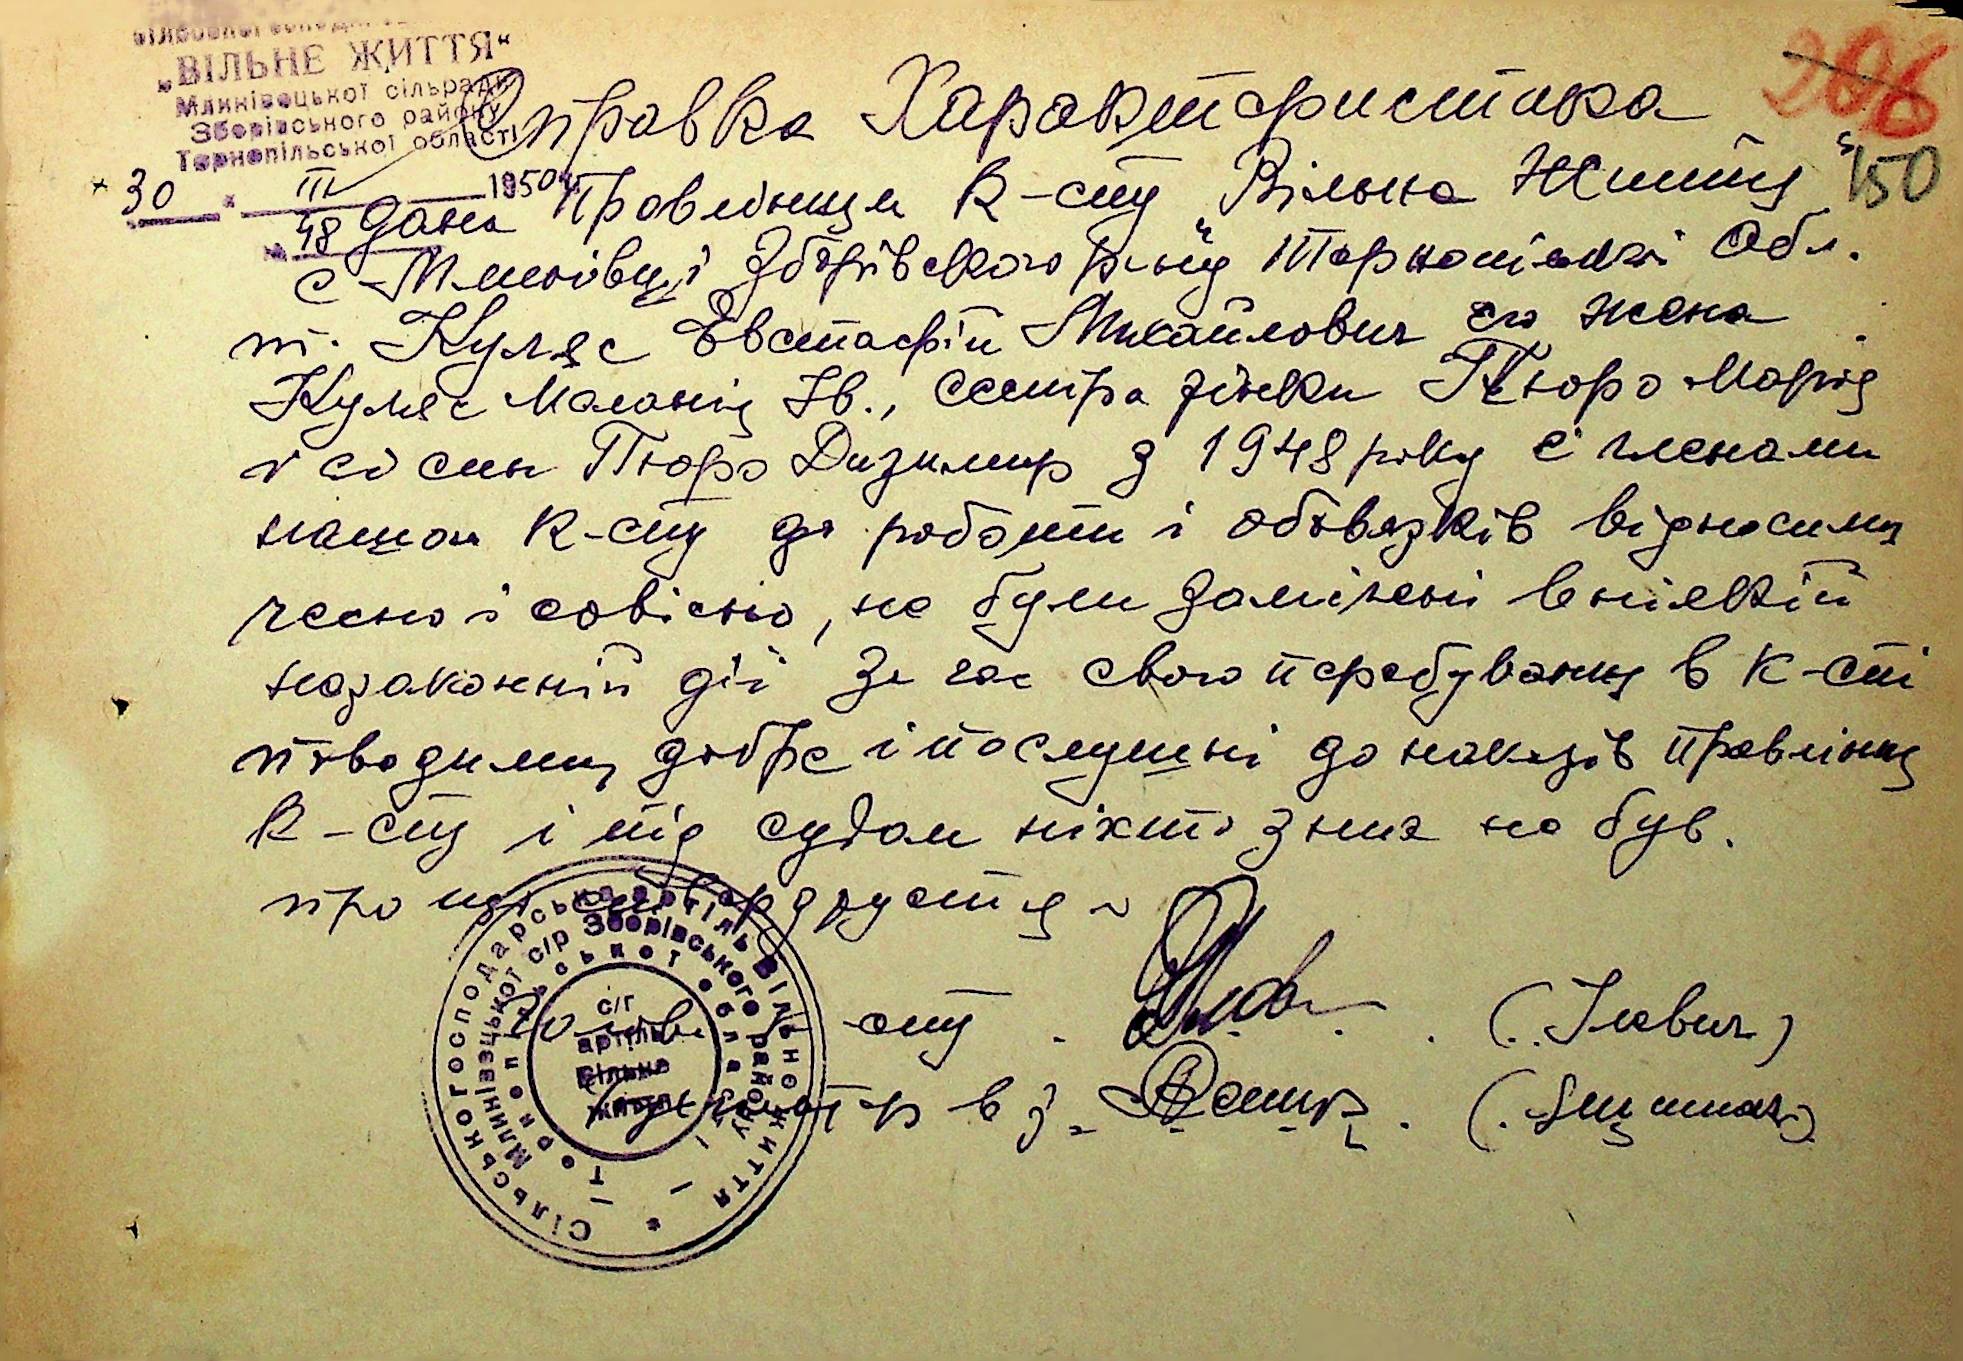 „ВІЛЬНЕ ЖИТТЯ“
Млинівецької сільради
Зборівського району
Тернопільської області
30 III 1950
№ 48
206
150
Справка Характеристика
Дана Правлінням К-спу "Вільне Життя"
с-Млинівці Зборівского р-ну Тернопільскі Обл.
т. Куляс Евстафій Михайлович его жена
Куляс Маланія Ів., сестра жінки Пюро Марія
Пюро з 1948 року є членами
нашого К-спу до роботи і обовязків відносились
чесно і совісно, не були замічені в ніякій
незаконній дії За час свого перебування в К-спі
поводились добре і послушні до наказів правління
К-спу і під судом ніхто з них не був.
про що стверджуєтця
Голова К-спу (Ількевич)
Бухгалтер
Сільськогосподарська артіль Вільне життя
Млинівецької с/р Зборівського району
Тернопільської області
с/г
артіль
Вільне
життя